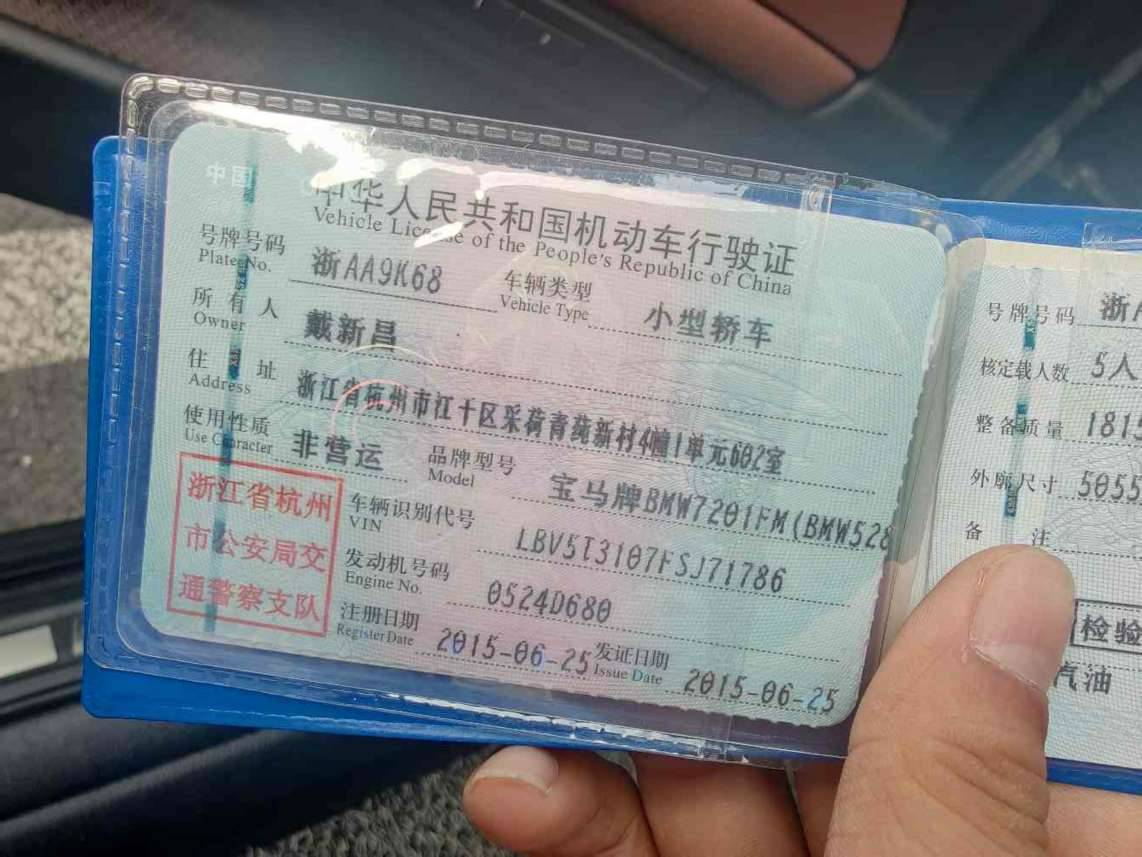 中国
中华人民共和国机动车行驶证
Vehicle License of the People's Republic of China
号牌号码
Plate No.
浙AA9K68
车辆类型
Vehicle Type
小型轿车
所有人
Owner
戴新昌
住址
Address
浙江省杭州市江干区采荷青莼新村4幢1单元602室
使用性质
Use Character
非营运
品牌型号
Model
宝马牌BMW7201FM(BMW528
车辆识别代号
VIN
LBV5T3107FSJ71786
发动机号码
Engine No.
0524D680
注册日期
Register Date
2015-06-25
发证日期
Issue Date
2015-06-25
浙江省杭州
市公安局交
通警察支队
号牌号码
浙A
核定载人数
5人
整备质量
181
外廓尺寸
5055
备注
检验
汽油